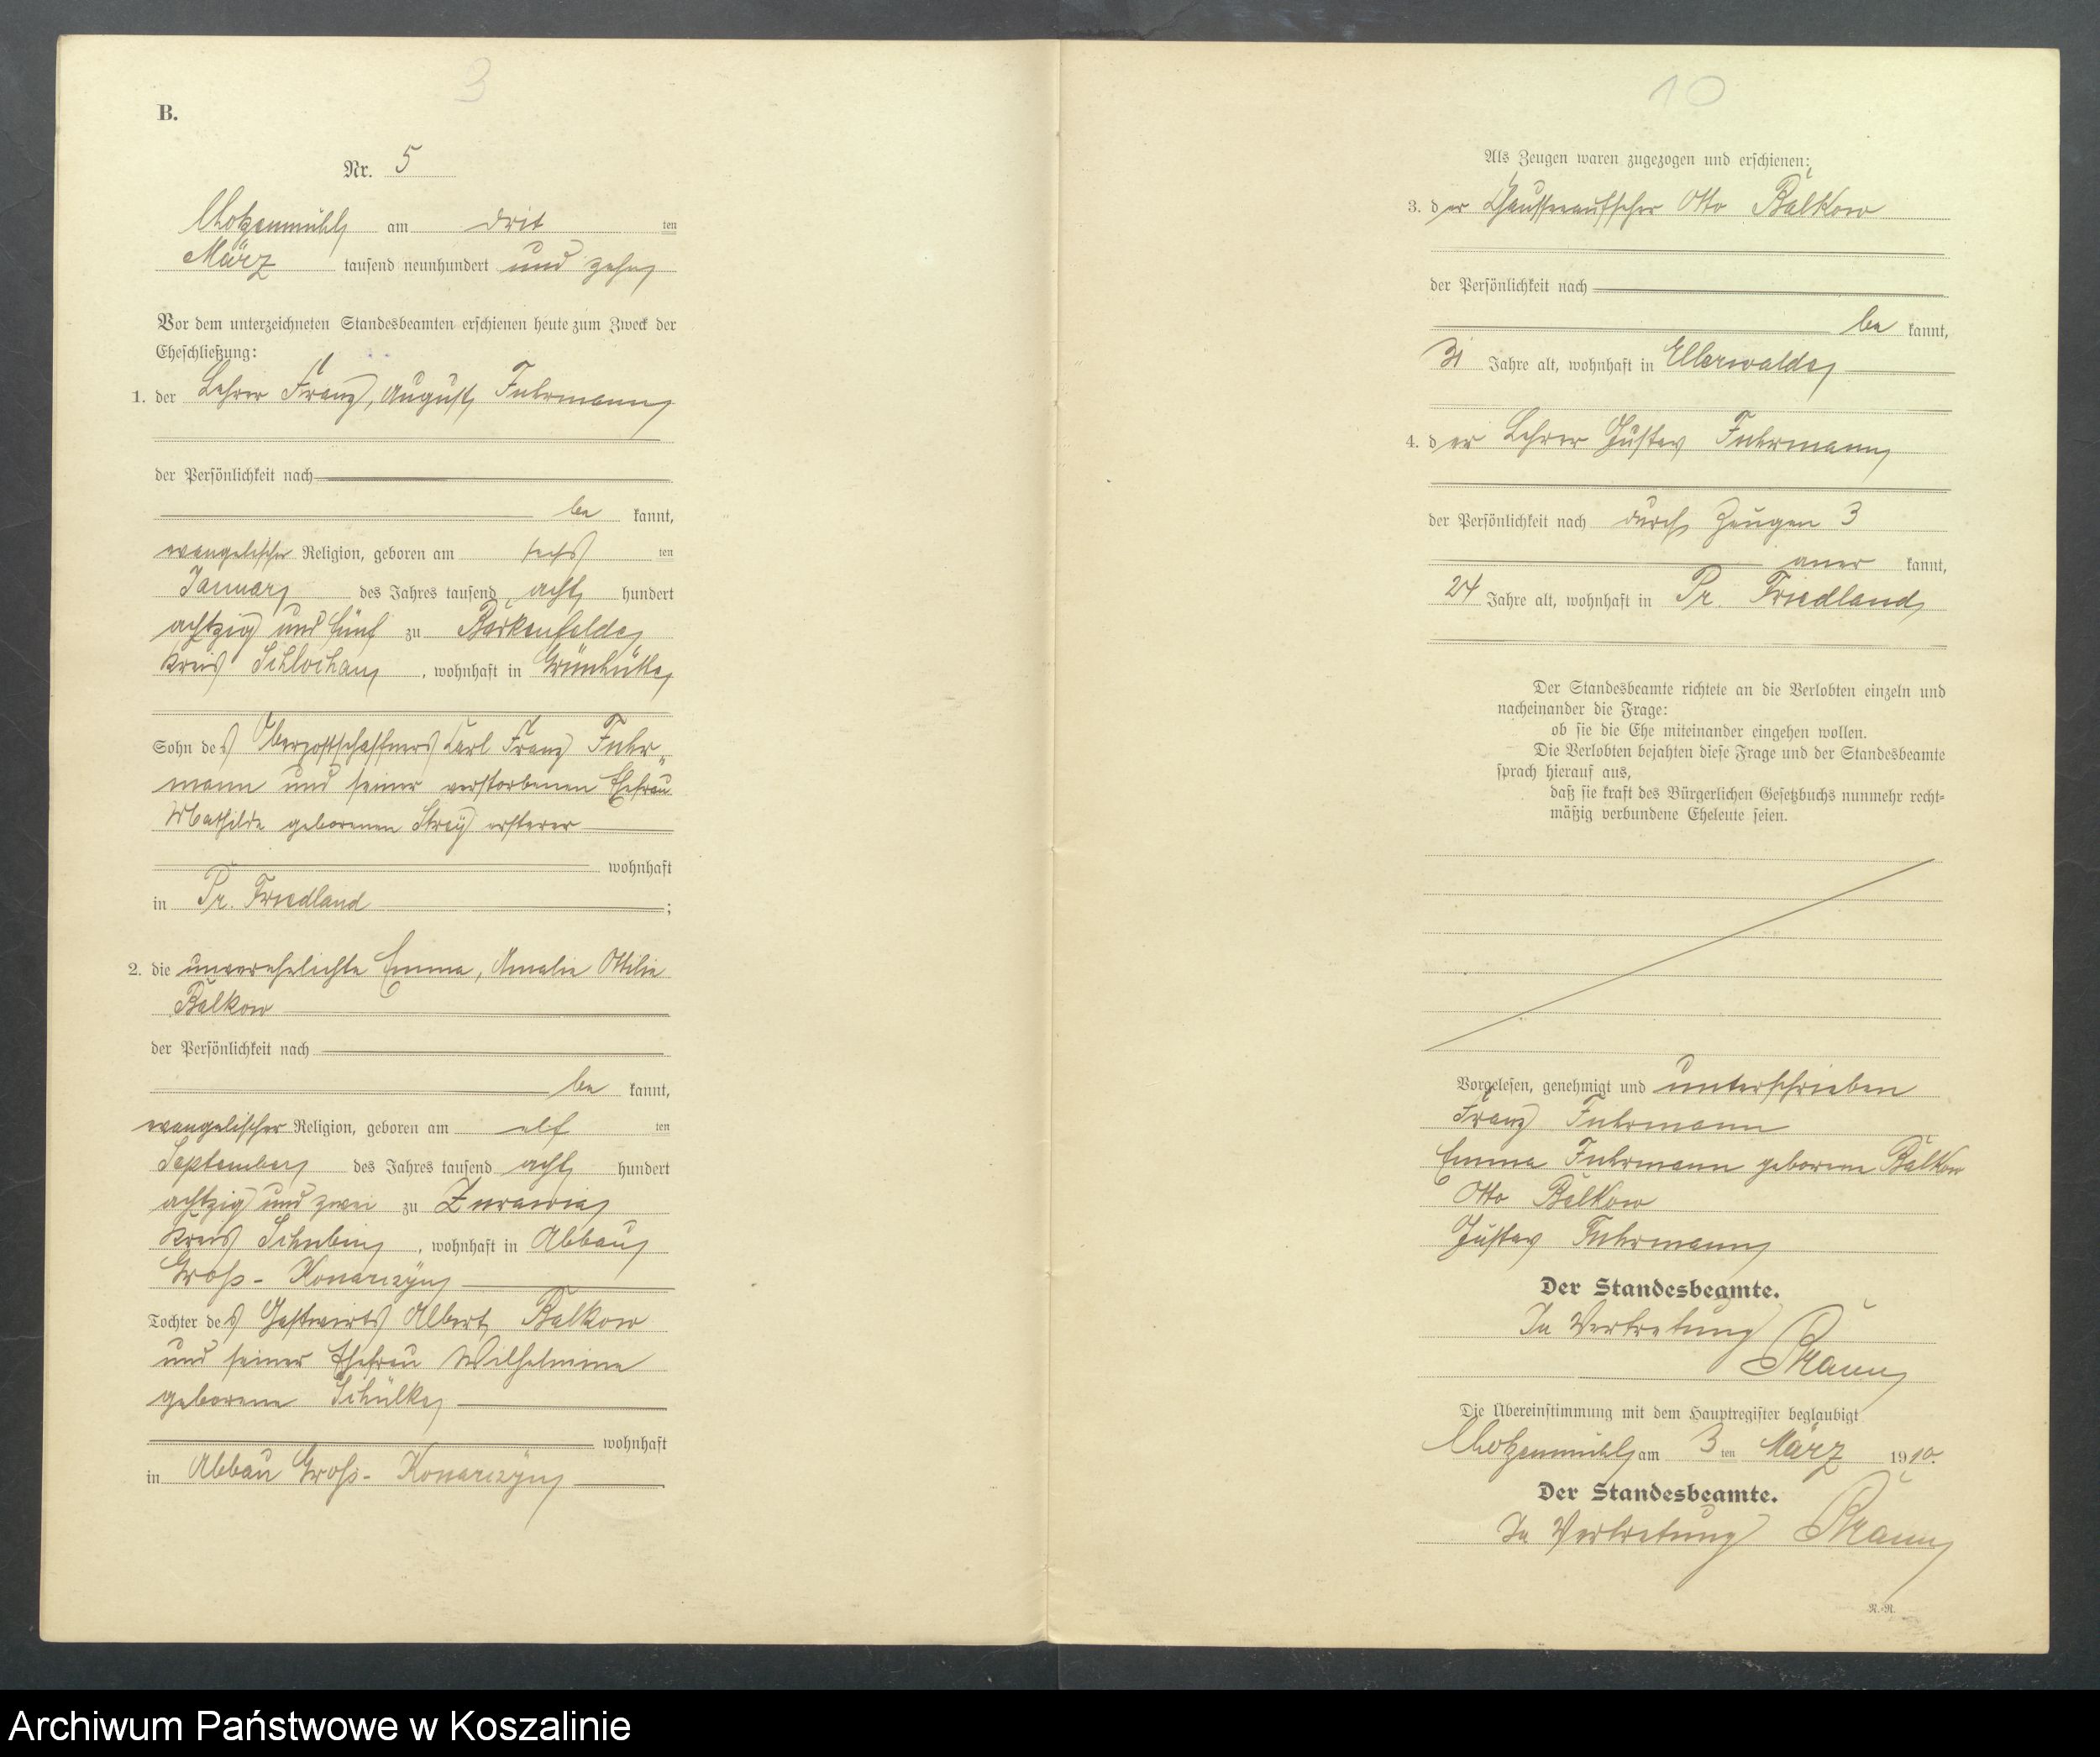 3
B.
Nr. 5
Chotzenmühl am drit ten
März tausend neunhundert und zehn
Vor dem unterzeichneten Standesbeamten erschienen heute zum Zweck der
Eheschließung:
1. der Lehrer Franz, August Fuhrmann
der Persönlichkeit nach
be kannt,
evangelischer Religion, geboren am sechs ten
Januar des Jahres tausend acht hundert
achtzig und fünf zu Barkenfelde
Kreis Schlochau, wohnhaft in Grünhütte
Sohn des Oberpostschaffners Karl Franz Fuhr„
mann und seiner verstorbenen Ehefrau
Mathilde geborenen Strey ersterer
wohnhaft
in Pr. Friedland ;
2. die unverehelichte Emma, Amalie Ottilie
Balkow
der Persönlichkeit nach
be kannt,
evangelischer Religion, geboren am elf ten
September des Jahres tausend acht hundert
achtzig und zwei zu Zurawia
Kreis Schubin, wohnhaft in Abbau
Groß- Konarczyn
Tochter des Gastwirts Albert Balkow
und seiner Ehefrau Wilhelmine
geborene Schülke
wohnhaft
in Abbau Groß- Konarczyn
10
Als Zeugen waren zugezogen und erschienen:
3. der Otto Balkow
der Persönlichkeit nach
be kannt,
31 Jahre alt, wohnhaft in Ellerwalde
4. der Lehrer Gustav Fuhrmann
der Persönlichkeit nach durch Zeugen 3
aner kannt,
24 Jahre alt, wohnhaft in Pr. Friedland
Der Standesbeamte richtete an die Verlobten einzeln und
nacheinander die Frage:
ob sie die Ehe miteinander eingehen wollen.
Die Verlobten bejahten diese Frage und der Standesbeamte
sprach hierauf aus,
daß sie kraft des Bürgerlichen Gesetzbuchs nunmehr recht-
mäßig verbundene Eheleute seien.
Vorgelesen, genehmigt und unterschrieben
Franz Fuhrmann
Emma Fuhrmann geborene Balkow
Otto Balkow
Gustav Fuhrmann
Der Standesbeamte.
In Vertretung
Die Übereinstimmung mit dem Hauptregister beglaubigt
Chotzenmühl am 3 ten März 1910.
Der Standesbeamte.
In Vertretung
R.-R.
Archiwum Państwowe w Koszalinie